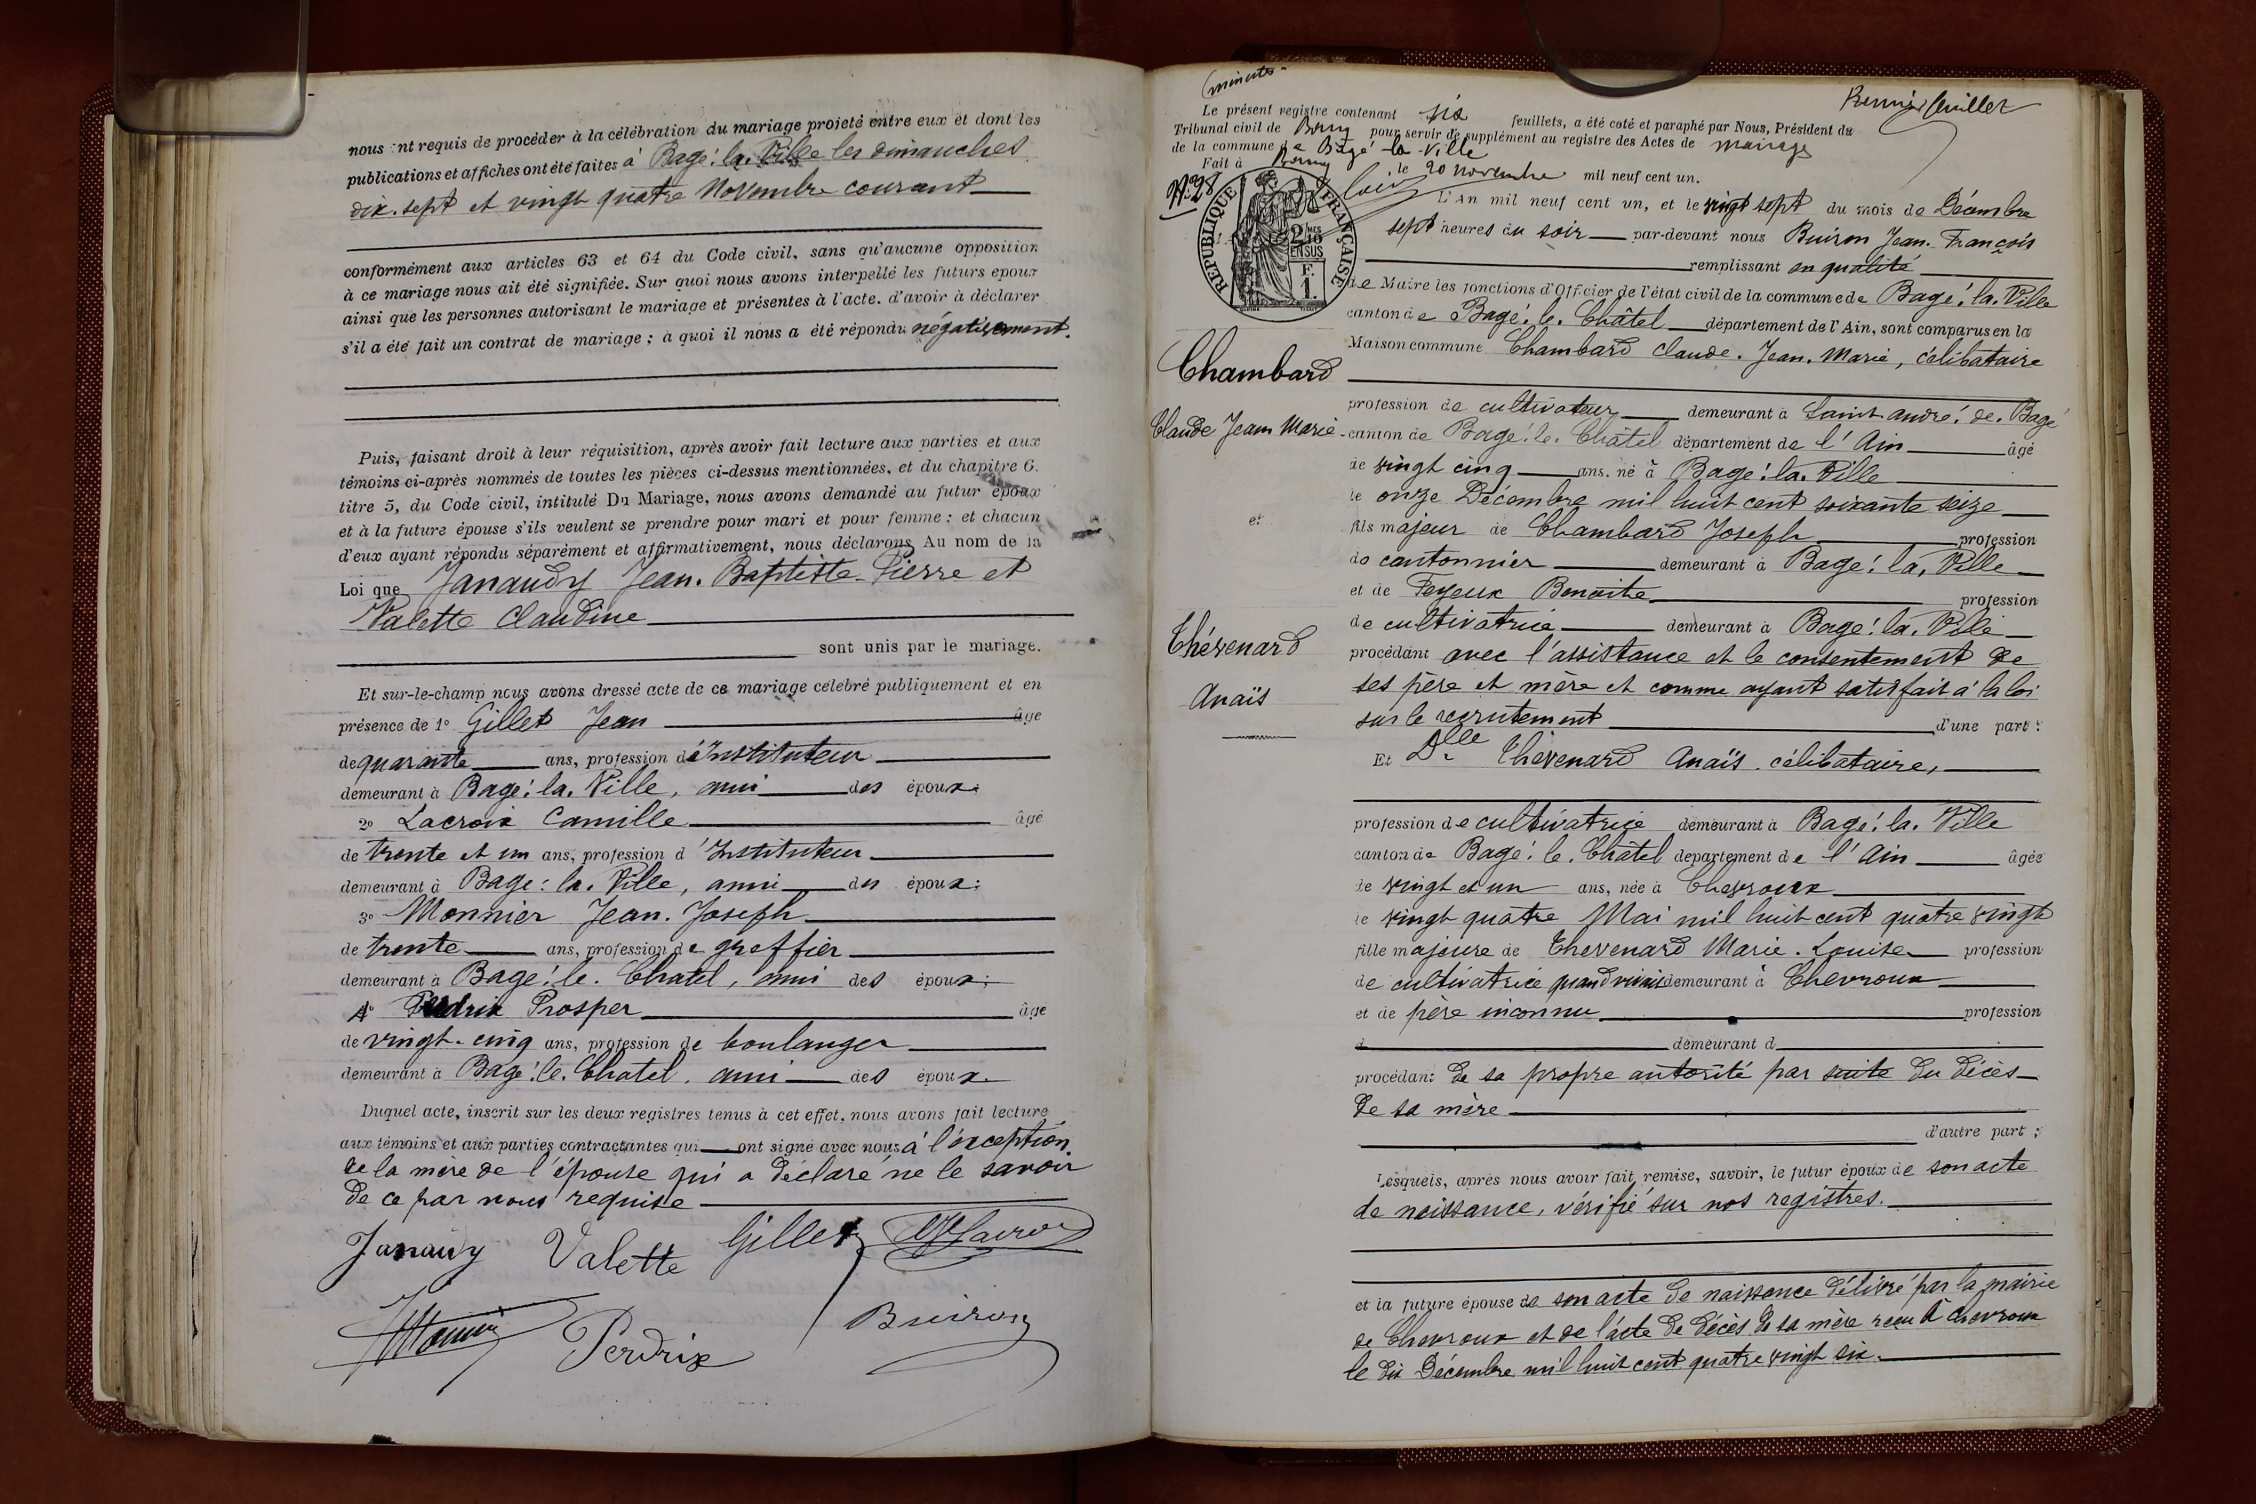 nous ont requis de procéder à la célébration du mariage projeté entre eux et dont les
publications et affiches ont été faites à Bagé-la-Ville les dimanches
dix-sept et vingt quatre Novembre courant
conformément aux articles 63 et 64 du Code civil, sans qu'aucune opposition
à ce mariage nous ait été signifiée. Sur quoi nous avons interpellé les futurs époux
ainsi que les personnes autorisant le mariage et présentes à l'acte, d'avoir à déclarer
s'il a été fait un contrat de mariage ; à quoi il nous a été répondu négativement.
Puis, faisant droit à leur réquisition, après avoir fait lecture aux parties et aux
témoins ci-après nommés de toutes les pièces ci-dessus mentionnées, et du chapitre 6.
titre 5, du Code civil, intitulé Du Mariage, nous avons demandé au futur époux
et à la future épouse s'ils veulent se prendre pour mari et pour femme : et chacun
d'eux ayant répondu séparément et affirmativement, nous déclarons Au nom de la
Loi que Janaudy Jean-Baptiste-Pierre et
Valette Claudine
sont unis par le mariage.
Et sur-le-champ nous avons dressé acte de ce mariage célébré publiquement et en
présence de 1° Gillet Jean âgé
de quarante ans, profession d'Instituteur
demeurant à Bagé-la-Ville, ami des époux ;
2° Lacroix Camille âgé
de trente et un ans, profession d'Instituteur
demeurant à Bagé-la-Ville, ami des époux ;
3° Monnier Jean-Joseph
de trente ans, profession de greffier
demeurant à Bagé-le-Chatel, ami des époux ;
4° Perdrix Prosper âgé
de vingt-cinq ans, profession de boulanger
demeurant à Bagé-le-Chatel, ami des époux.
Duquel acte, inscrit sur les deux registres tenus à cet effet, nous avons fait lecture
aux témoins et aux parties contractantes qui ont signé avec nous à l'exception
de la mère de l'épouse qui a déclaré ne le savoir
de ce par nous requise
Janaudy Valette Gillet
Perdrix Buiron
minute
Premier feuillet
Le présent registre contenant six feuillets, a été coté et paraphé par Nous, Président du
Tribunal civil de Bourg pour servir de supplément au registre des Actes de mariage
de la commune de Bagé-la-Ville
Fait à Bourg, le 20 novembre mil neuf cent un.
N° 28
RÉPUBLIQUE FRANÇAISE
2/10
EN SUS
F.
1.
L'An mil neuf cent un, et le vingt sept du mois de Décembre
sept heures du soir par-devant nous Buiron Jean-François
remplissant en qualité
de Maire les fonctions d'Officier de l'état civil de la commune de Bagé-la-Ville
canton de Bagé-le-Châtel département de l'Ain, sont comparus en la
Maison commune Chambard Claude-Jean-Marie, célibataire
Chambard
Claude Jean Marie
et
Thévenard
Anaïs
profession de cultivateur demeurant à Saint-André-de-Bagé
canton de Bagé-le-Châtel département de l'Ain âgé
de vingt cinq ans, né à Bagé-la-Ville
le onze Décembre mil huit cent soixante seize
fils majeur de Chambard Joseph profession
de cantonnier demeurant à Bagé-la-Ville
et de Feyeux Benoite profession
de cultivatrice demeurant à Bagé-la-Ville
procédant avec l'assistance et le consentement de
ses père et mère et comme ayant satisfait à la loi
sur le recrutement d'une part ;
Et Dlle Thévenard Anaïs, célibataire,
profession de cultivatrice demeurant à Bagé-la-Ville
canton de Bagé-le-Châtel département de l'Ain âgée
de vingt et un ans, née à Chevroux
le vingt quatre Mai mil huit cent quatre vingt
fille majeure de Thévenard Marie-Louise profession
de cultivatrice quand vivait demeurant à Chevroux
et de père inconnu profession
d demeurant d
procédant de sa propre autorité par suite du décès
de sa mère
d'autre part ;
Lesquels, après nous avoir fait remise, savoir, le futur époux de son acte
de naissance, vérifié sur nos registres.
et la future épouse de son acte de naissance délivré par la mairie
de Chevroux et de l'acte de décès de sa mère reçu à Chevroux
le dix Décembre mil huit cent quatre vingt six.